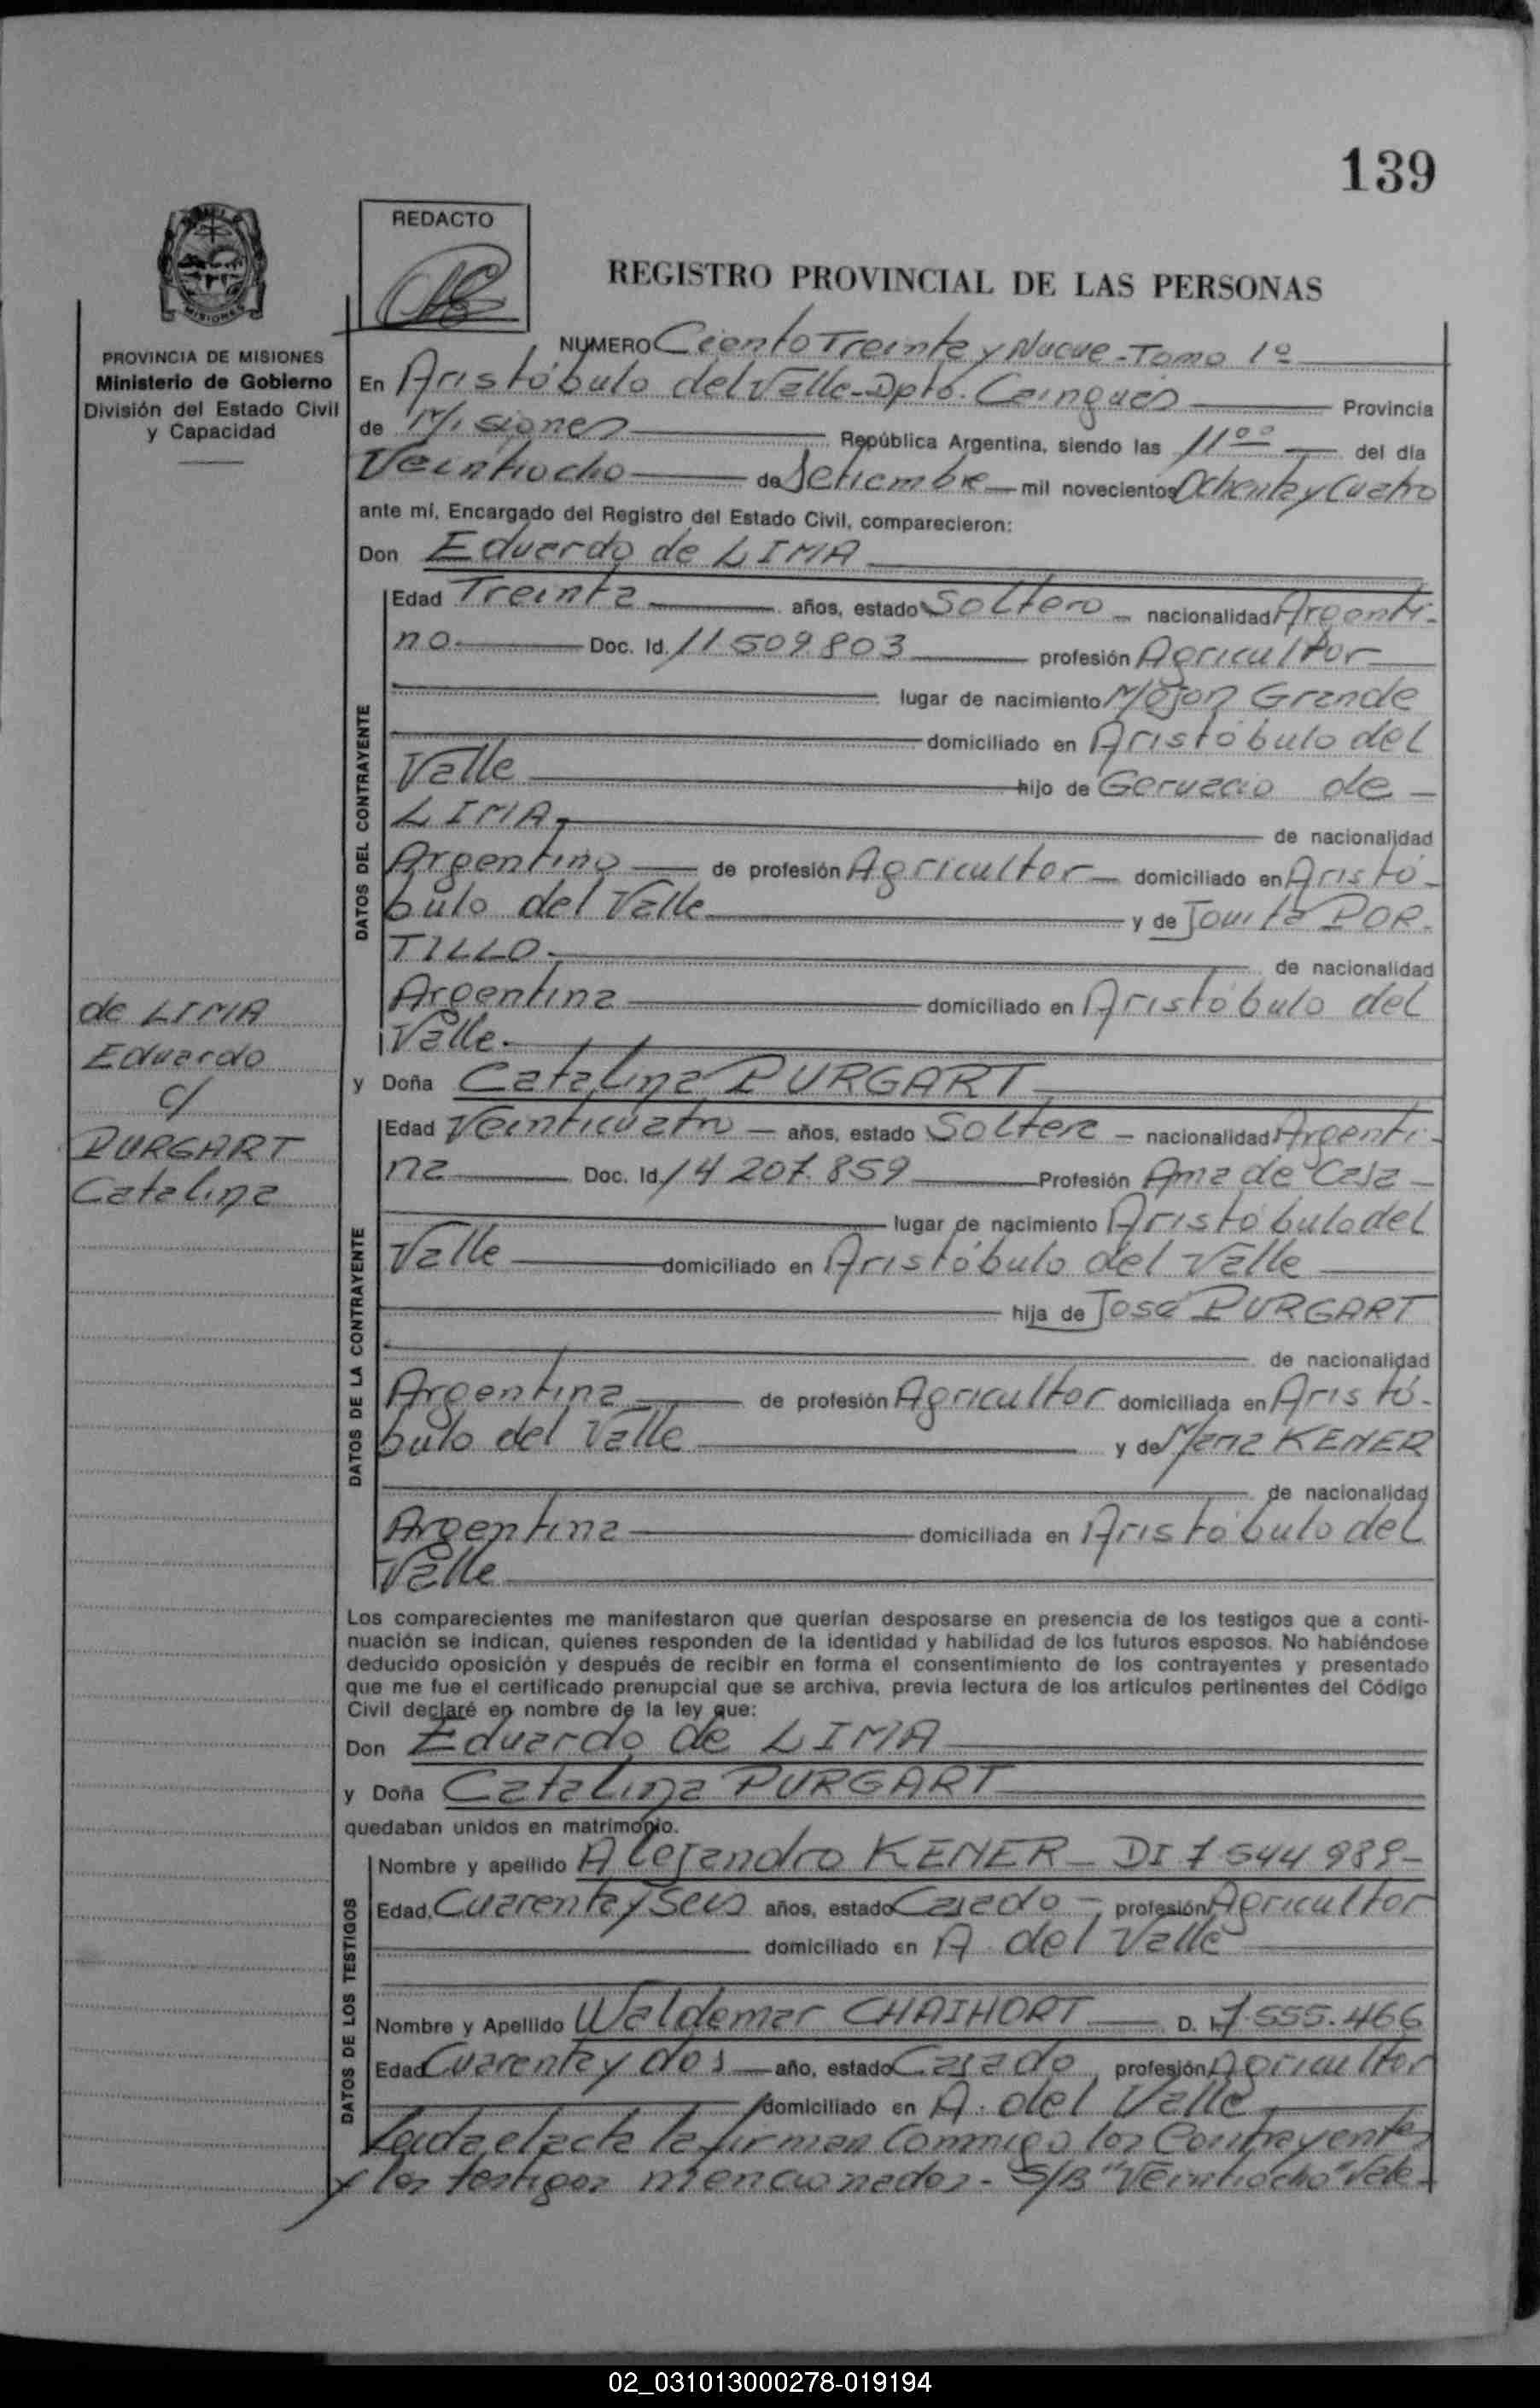 139
REDACTO
REGISTRO PROVINCIAL DE LAS PERSONAS
MISIONES
PROVINCIA DE MISIONES
Ministerio de Gobierno
División del Estado Civil
y Capacidad
NUMERO Ciento Treinta y Nueve - Tomo 1º
En Aristóbulo del Valle - Dpto. Cainguás Provincia
de Misiones República Argentina, siendo las 11ºº del día
Veintiocho de Setiembre mil novecientos Ochenta y Cuatro
ante mí, Encargado del Registro del Estado Civil, comparecieron:
Don Eduardo de LIMA
DATOS DEL CONTRAYENTE
Edad Treinta años, estado Soltero - nacionalidad Argenti-
no Doc. Id. 11.509.803 profesión Agricultor
lugar de nacimiento Mojon Grande
domiciliado en Aristóbulo del
Valle hijo de Gervacio de -
LIMA de nacionalidad
Argentino de profesión Agricultor domiciliado en Aristó-
bulo del Valle y de Jovita POR-
TILLO de nacionalidad
Argentina domiciliado en Aristóbulo del
Valle.
de LIMA
Eduardo
c/
PURGART
Catalina
y Doña Catalina PURGART
DATOS DE LA CONTRAYENTE
Edad Veinticuatro - años, estado Soltera - nacionalidad Argenti-
na Doc. Id. 14.207.859 Profesión Ama de Casa -
lugar de nacimiento Aristóbulo del
Valle domiciliado en Aristóbulo del Valle
hija de José PURGART
de nacionalidad
Argentina de profesión Agricultor domiciliada en Aristó-
bulo del Valle y de Maria KENER
de nacionalidad
Argentina domiciliada en Aristóbulo del
Valle
Los comparecientes me manifestaron que querían desposarse en presencia de los testigos que a conti-
nuación se indican, quienes responden de la identidad y habilidad de los futuros esposos. No habiéndose
deducido oposición y después de recibir en forma el consentimiento de los contrayentes y presentado
que me fue el certificado prenupcial que se archiva, previa lectura de los artículos pertinentes del Código
Civil declaré en nombre de la ley que:
Don Eduardo de LIMA
y Doña Catalina PURGART
quedaban unidos en matrimonio.
DATOS DE LOS TESTIGOS
Nombre y apellido Alejandro KENER - DI 7.544.989-
Edad Cuarenta y Seis años, estado Casado - profesión Agricultor
domiciliado en A. del Valle
Nombre y Apellido Waldemar CHAIHORT D. I. 7.555.466
Edad Cuarenta y dos año, estado Casado profesión Agricultor
domiciliado en A. del Valle
Leida el acta la firman Conmigo los Contrayentes
y los testigos mencionados - S/B "Veintiocho" Vale -
02_031013000278-019194